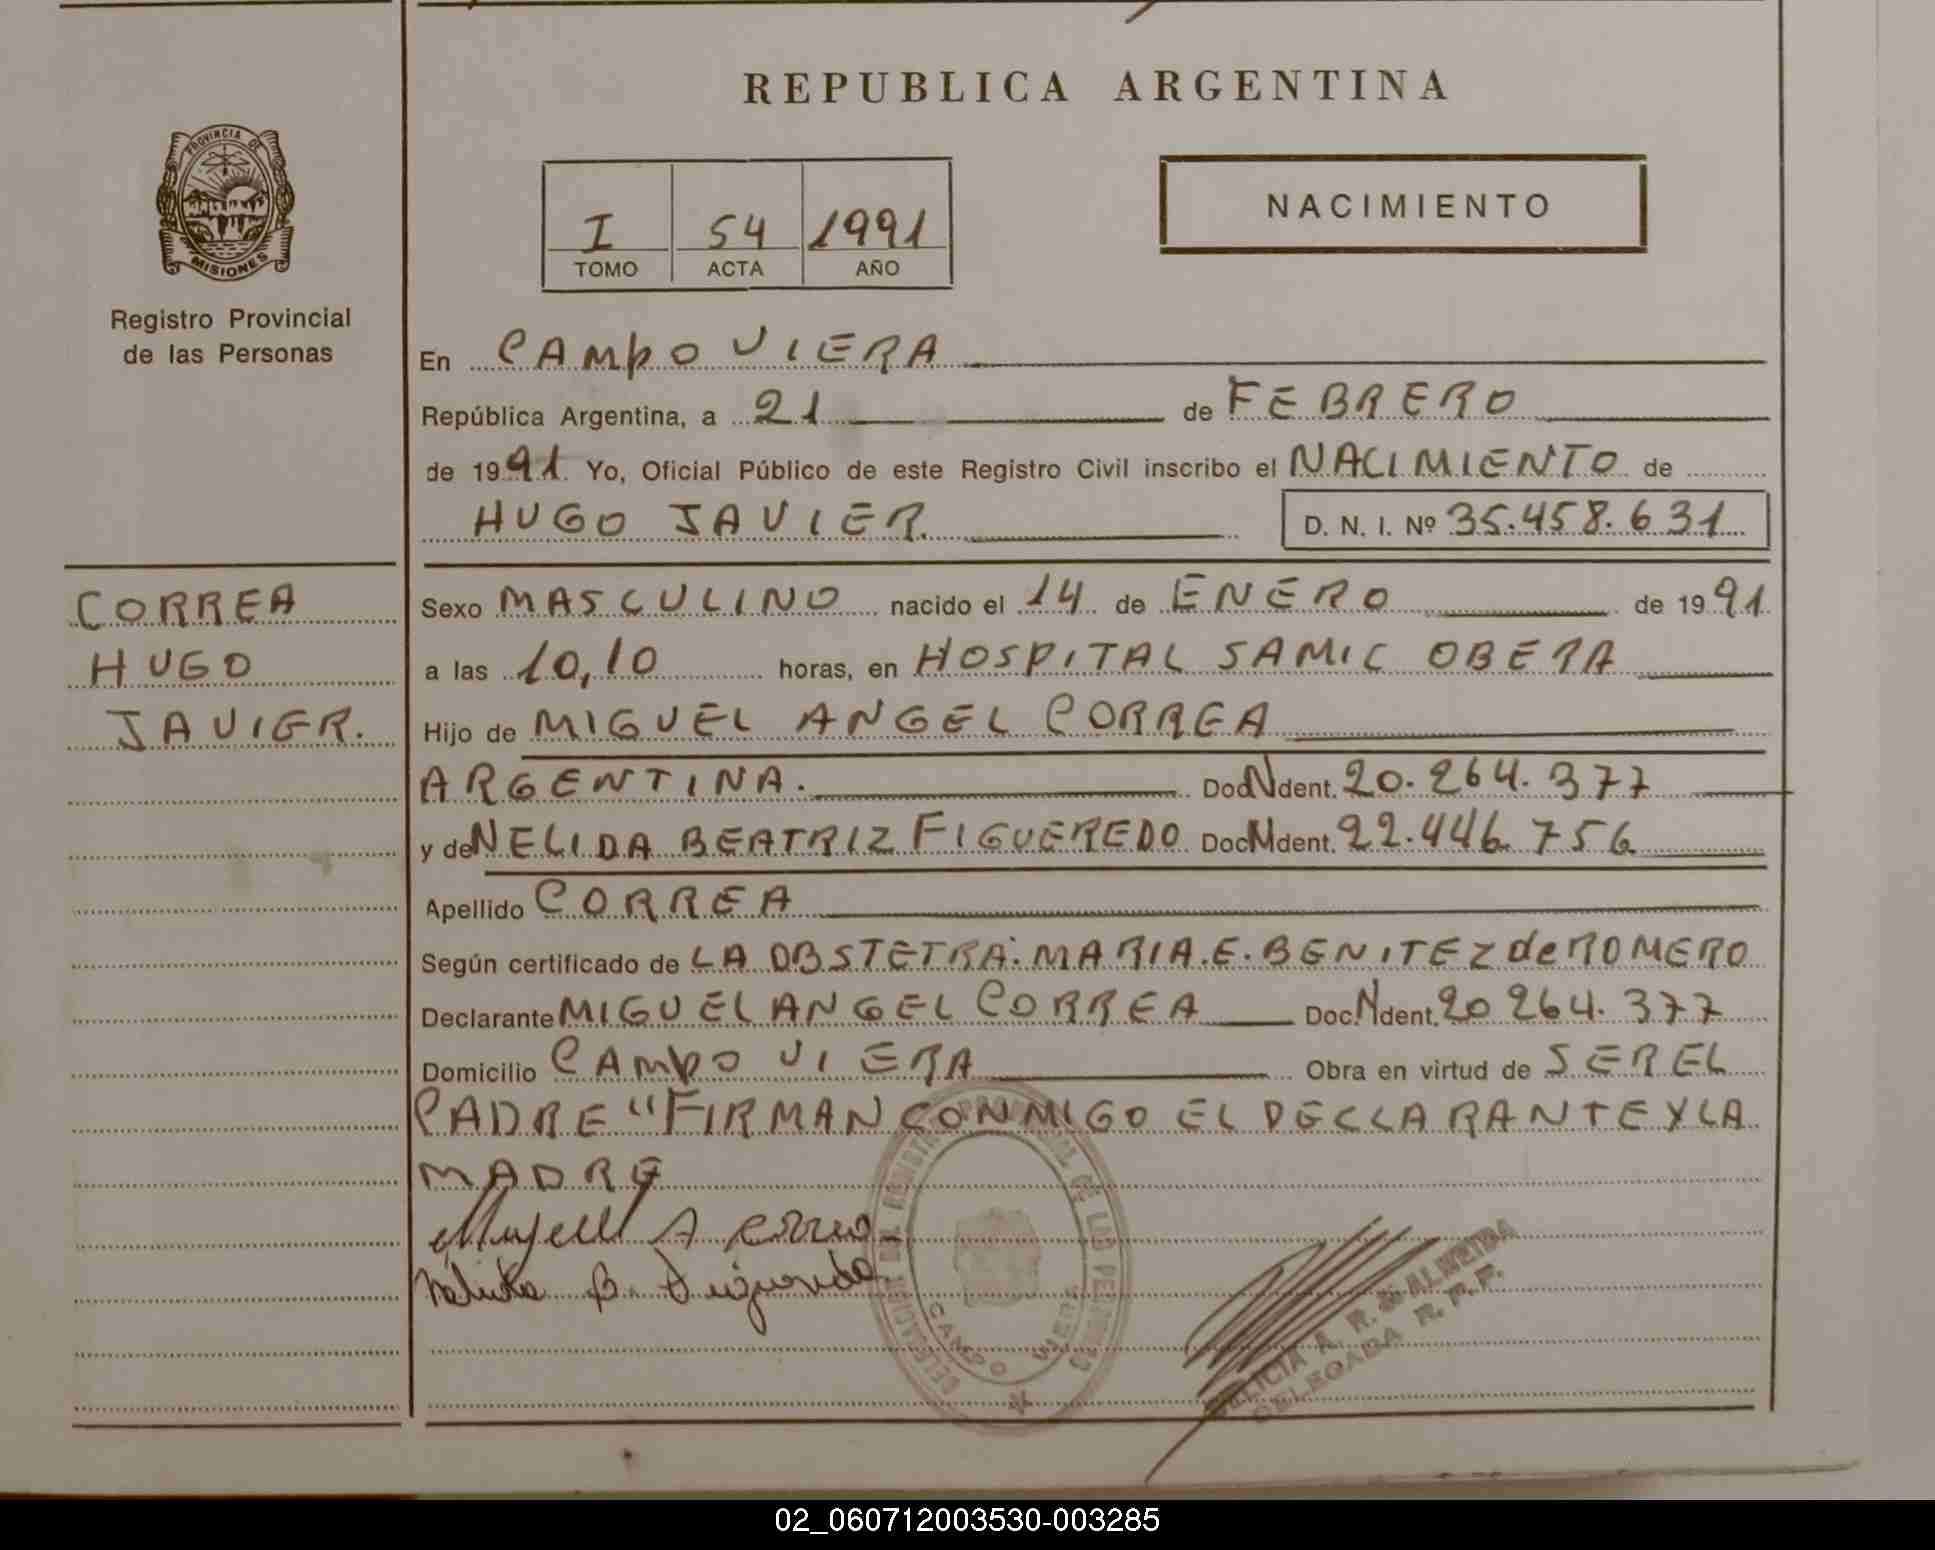 REPUBLICA ARGENTINA
PROVINCIA DE
MISIONES
Registro Provincial
de las Personas
I 54 1991
TOMO ACTA AÑO
NACIMIENTO
En CAMpO VIERA
República Argentina, a 21 de FEBRERO
de 1991 Yo, Oficial Público de este Registro Civil inscribo el NACIMIENTO de
HUGO JAVIER. D. N. I. Nº 35.458.631
CORREA
HUGO
JAVIER.
Sexo MASCULINO nacido el 14 de ENERO de 1991
a las 10,10 horas, en HOSPITAL SAMIC OBERA
Hijo de MIGUEL ANGEL CORREA
ARGENTINA. Doc N Ident. 20.264.377
y de NELIDA BEATRIZ FIGUEREDO Doc N Ident. 22.446.756
Apellido CORREA
Según certificado de LA OBSTETRA: MARIA.E.BENITEZ de ROMERO
Declarante MIGUEL ANGEL CORREA Doc. N Ident. 20 264.377
Domicilio CAMpO VIERA Obra en virtud de SER EL
PADRE "FIRMAN CONMIGO EL DECLARANTE Y LA
MADRE
A Correa
B.
DELEGACION DEL REGISTRO PROVINCIAL DE LAS PERSONAS
CAMPO VIERA
A. R. de ALMEIDA
DELEGADA R. P. P.
02_060712003530-003285